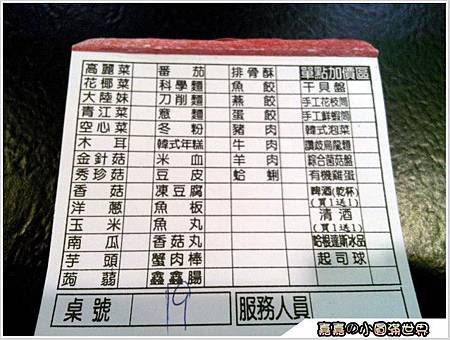 高麗菜 番茄 排骨酥 單點加價區
花椰菜 科學麵 魚餃 干貝盤
大陸妹 刀削麵 燕餃 手工花枝筒
青江菜 意麵 蛋餃 手工鮮蝦筒
空心菜 冬粉 豬肉 韓式泡菜
木耳 韓式年糕 牛肉 讚岐烏龍麵
金針菇 米血 羊肉 綜合菌菇盤
秀珍菇 豆皮 蛤蜊 有機雞蛋
香菇 凍豆腐 啤酒(乾杯)
洋蔥 魚板 (買1送1)
玉米 魚丸 清酒
南瓜 香菇丸 (買1送1)
芋頭 蟹肉棒 哈根達斯冰品
蒟蒻 鑫鑫腸 起司球
桌號 19 服務人員
嘉嘉の小圓滿世界